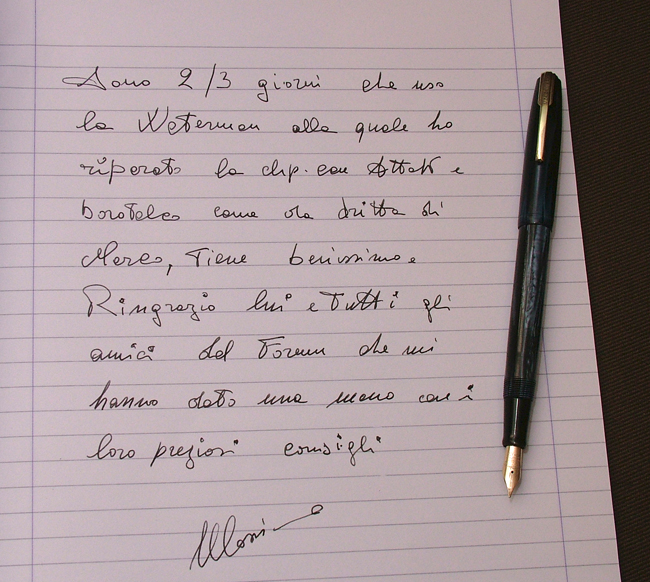 Sono 2/3 giorni che uso
la Waterman alla quale ho
riparato la clip. con Attak e
borotalco come da dritta di
Marco, Tiene benissimo e
Ringrazio lui e Tutti gli
amici del Forum che mi
hanno dato una mano con i
loro preziosi consigli